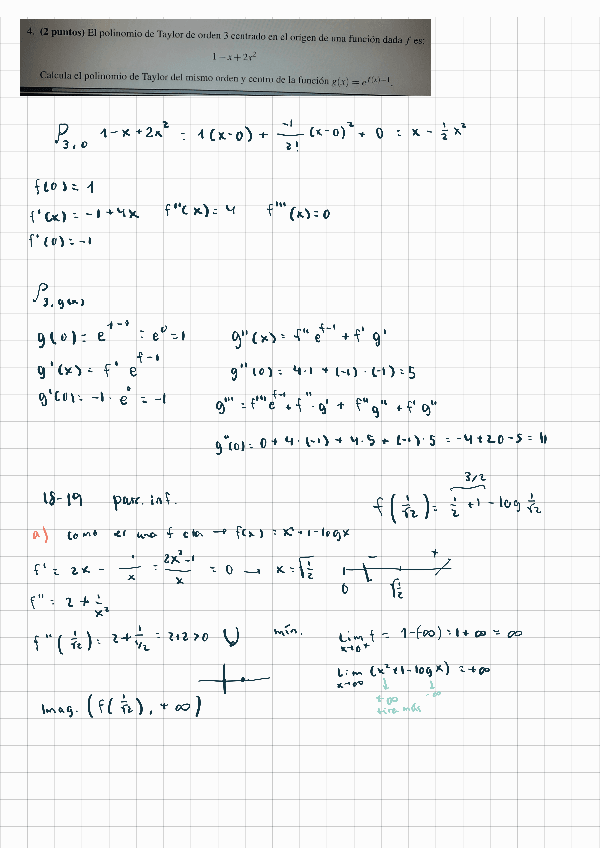 4. (2 puntos) El polinomio de Taylor de orden 3 centrado en el origen de una función dada f es:
1 − x + 2x²
Calcula el polinomio de Taylor del mismo orden y centro de la función g(x) = e^{f(x)−1}.
P_{3,0} 1-x+2x² = 1(x-0) + \frac{-1}{2!} (x-0)² + 0 = x - ½x²
f(0) = 1
f'(x) = -1+4x f''(x) = 4 f'''(x) = 0
f'(0) = -1
P_{3, g(x)}
g(0) = e^{f-1} = e^0 = 1 g''(x) = f'' e^{f-1} + f' g'
g'(x) = f' e^{f-1} g''(0) = 4·1 + (-1)·(-1) = 5
g'(0) = -1 · e^0 = -1 g''' = f''' e^{f-1} + f''·g' + f'' g'' + f' g''
g''(0) = 0 + 4·(-1) + 4·5 + (-1)·5 = -4+20-5 = 11
18-19 parc. inf. f(\frac{1}{√2}) = \frac{1}{2} + 1 - log \frac{1}{√2}
3/2
a) como es una f cta → f(x) = x²+1-logx
f' = 2x - \frac{1}{x} = \frac{2x²-1}{x} = 0 → x = √\frac{1}{2}
- +
0 √\frac{1}{2}
f'' = 2 + \frac{1}{x²}
f''(\frac{1}{√2}) = 2 + \frac{1}{1/2} = 2+2 > 0 mín. lim_{x→0+} f = 1-(-∞) = 1+∞ = ∞
lim_{x→+∞} (x²+1-logx) = +∞
+∞ -∞
tira más
Imag. (f(\frac{1}{√2}), +∞)